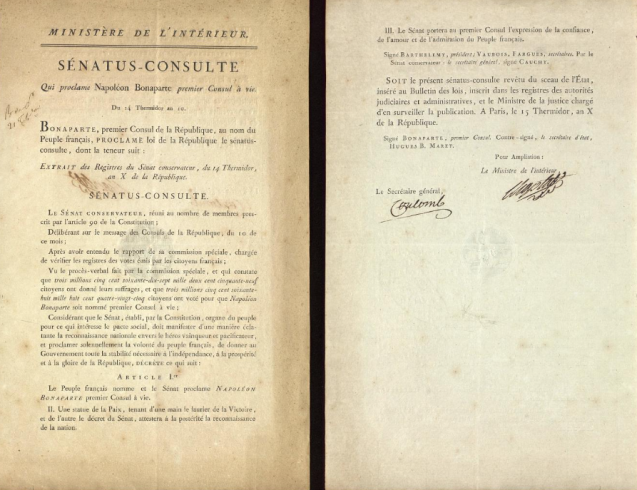 MINISTÈRE DE L'INTÉRIEUR.
SÉNATUS-CONSULTE
Qui proclame Napoléon Bonaparte premier Consul à vie.
Du 14 Thermidor an 10.
BONAPARTE, premier Consul de la République, au nom du
Peuple français, PROCLAME loi de la République le sénatus-
consulte, dont la teneur suit :
EXTRAIT des Registres du Sénat conservateur, du 14 Thermidor,
an X de la République.
SÉNATUS-CONSULTE.
LE SÉNAT CONSERVATEUR, réuni au nombre de membres pres-
crit par l'article 90 de la Constitution ;
Délibérant sur le message des Consuls de la République, du 10 de
ce mois ;
Après avoir entendu le rapport de sa commission spéciale, chargée
de vérifier les registres des votes émis par les citoyens français ;
Vu le procès-verbal fait par la commission spéciale, et qui constate
que trois millions cinq cent soixante-dix-sept mille deux cent cinquante-neuf
citoyens ont donné leurs suffrages, et que trois millions cinq cent soixante-
huit mille huit cent quatre-vingt-cinq citoyens ont voté pour que Napoléon
Bonaparte soit nommé premier Consul à vie ;
Considérant que le Sénat, établi, par la Constitution, organe du peuple
pour ce qui intéresse le pacte social, doit manifester d'une manière écla-
tante la reconnaissance nationale envers le héros vainqueur et pacificateur,
et proclamer solennellement la volonté du peuple français, de donner au
Gouvernement toute la stabilité nécessaire à l'indépendance, à la prospérité
et à la gloire de la République, DÉCRÈTE ce qui suit :
ARTICLE I.er
Le Peuple français nomme et le Sénat proclame NAPOLÉON
BONAPARTE premier Consul à vie.
II. Une statue de la Paix, tenant d'une main le laurier de la Victoire,
et de l'autre le décret du Sénat, attestera à la postérité la reconnaissance
de la nation.
III. Le Sénat portera au premier Consul l'expression de la confiance,
de l'amour et de l'admiration du Peuple français.
Signé BARTHELEMY, président ; VAUBOIS, FARGUES, secrétaires. Par le
Sénat conservateur : le secrétaire général, signé CAUCHY.
SOIT le présent sénatus-consulte revêtu du sceau de l'État,
inséré au Bulletin des lois, inscrit dans les registres des autorités
judiciaires et administratives, et le Ministre de la justice chargé
d'en surveiller la publication. A Paris, le 15 Thermidor, an X
de la République.
Signé BONAPARTE, premier Consul. Contre-signé, le secrétaire d'état,
HUGUES B. MARET.
Pour Ampliation :
Le Ministre de l'intérieur,
Le Secrétaire général,
Coulomb